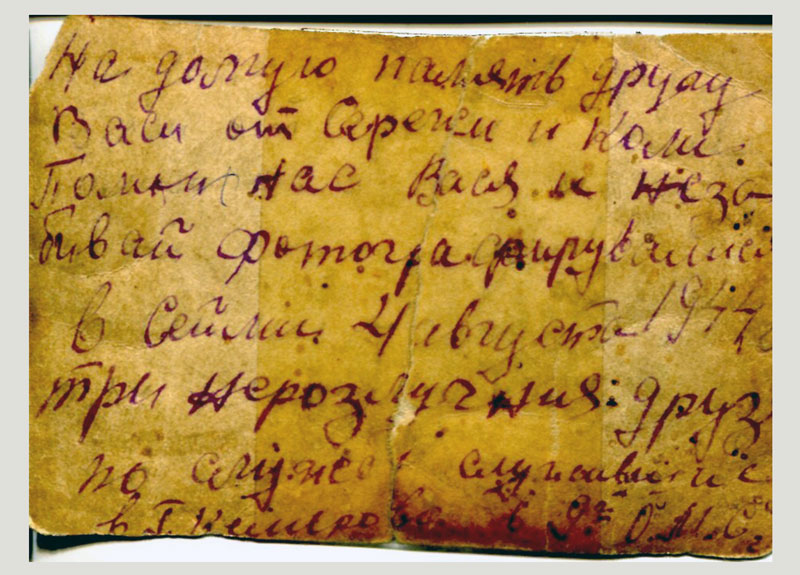 На долгую память другу
Васи от Сережи и Коли.
Помни нас Вася и неза
бивай фотографирувались
в Сейми 4 августа 1944 г
три нерозлучния друз
по службе служивши с
в г. Кемерово в 9